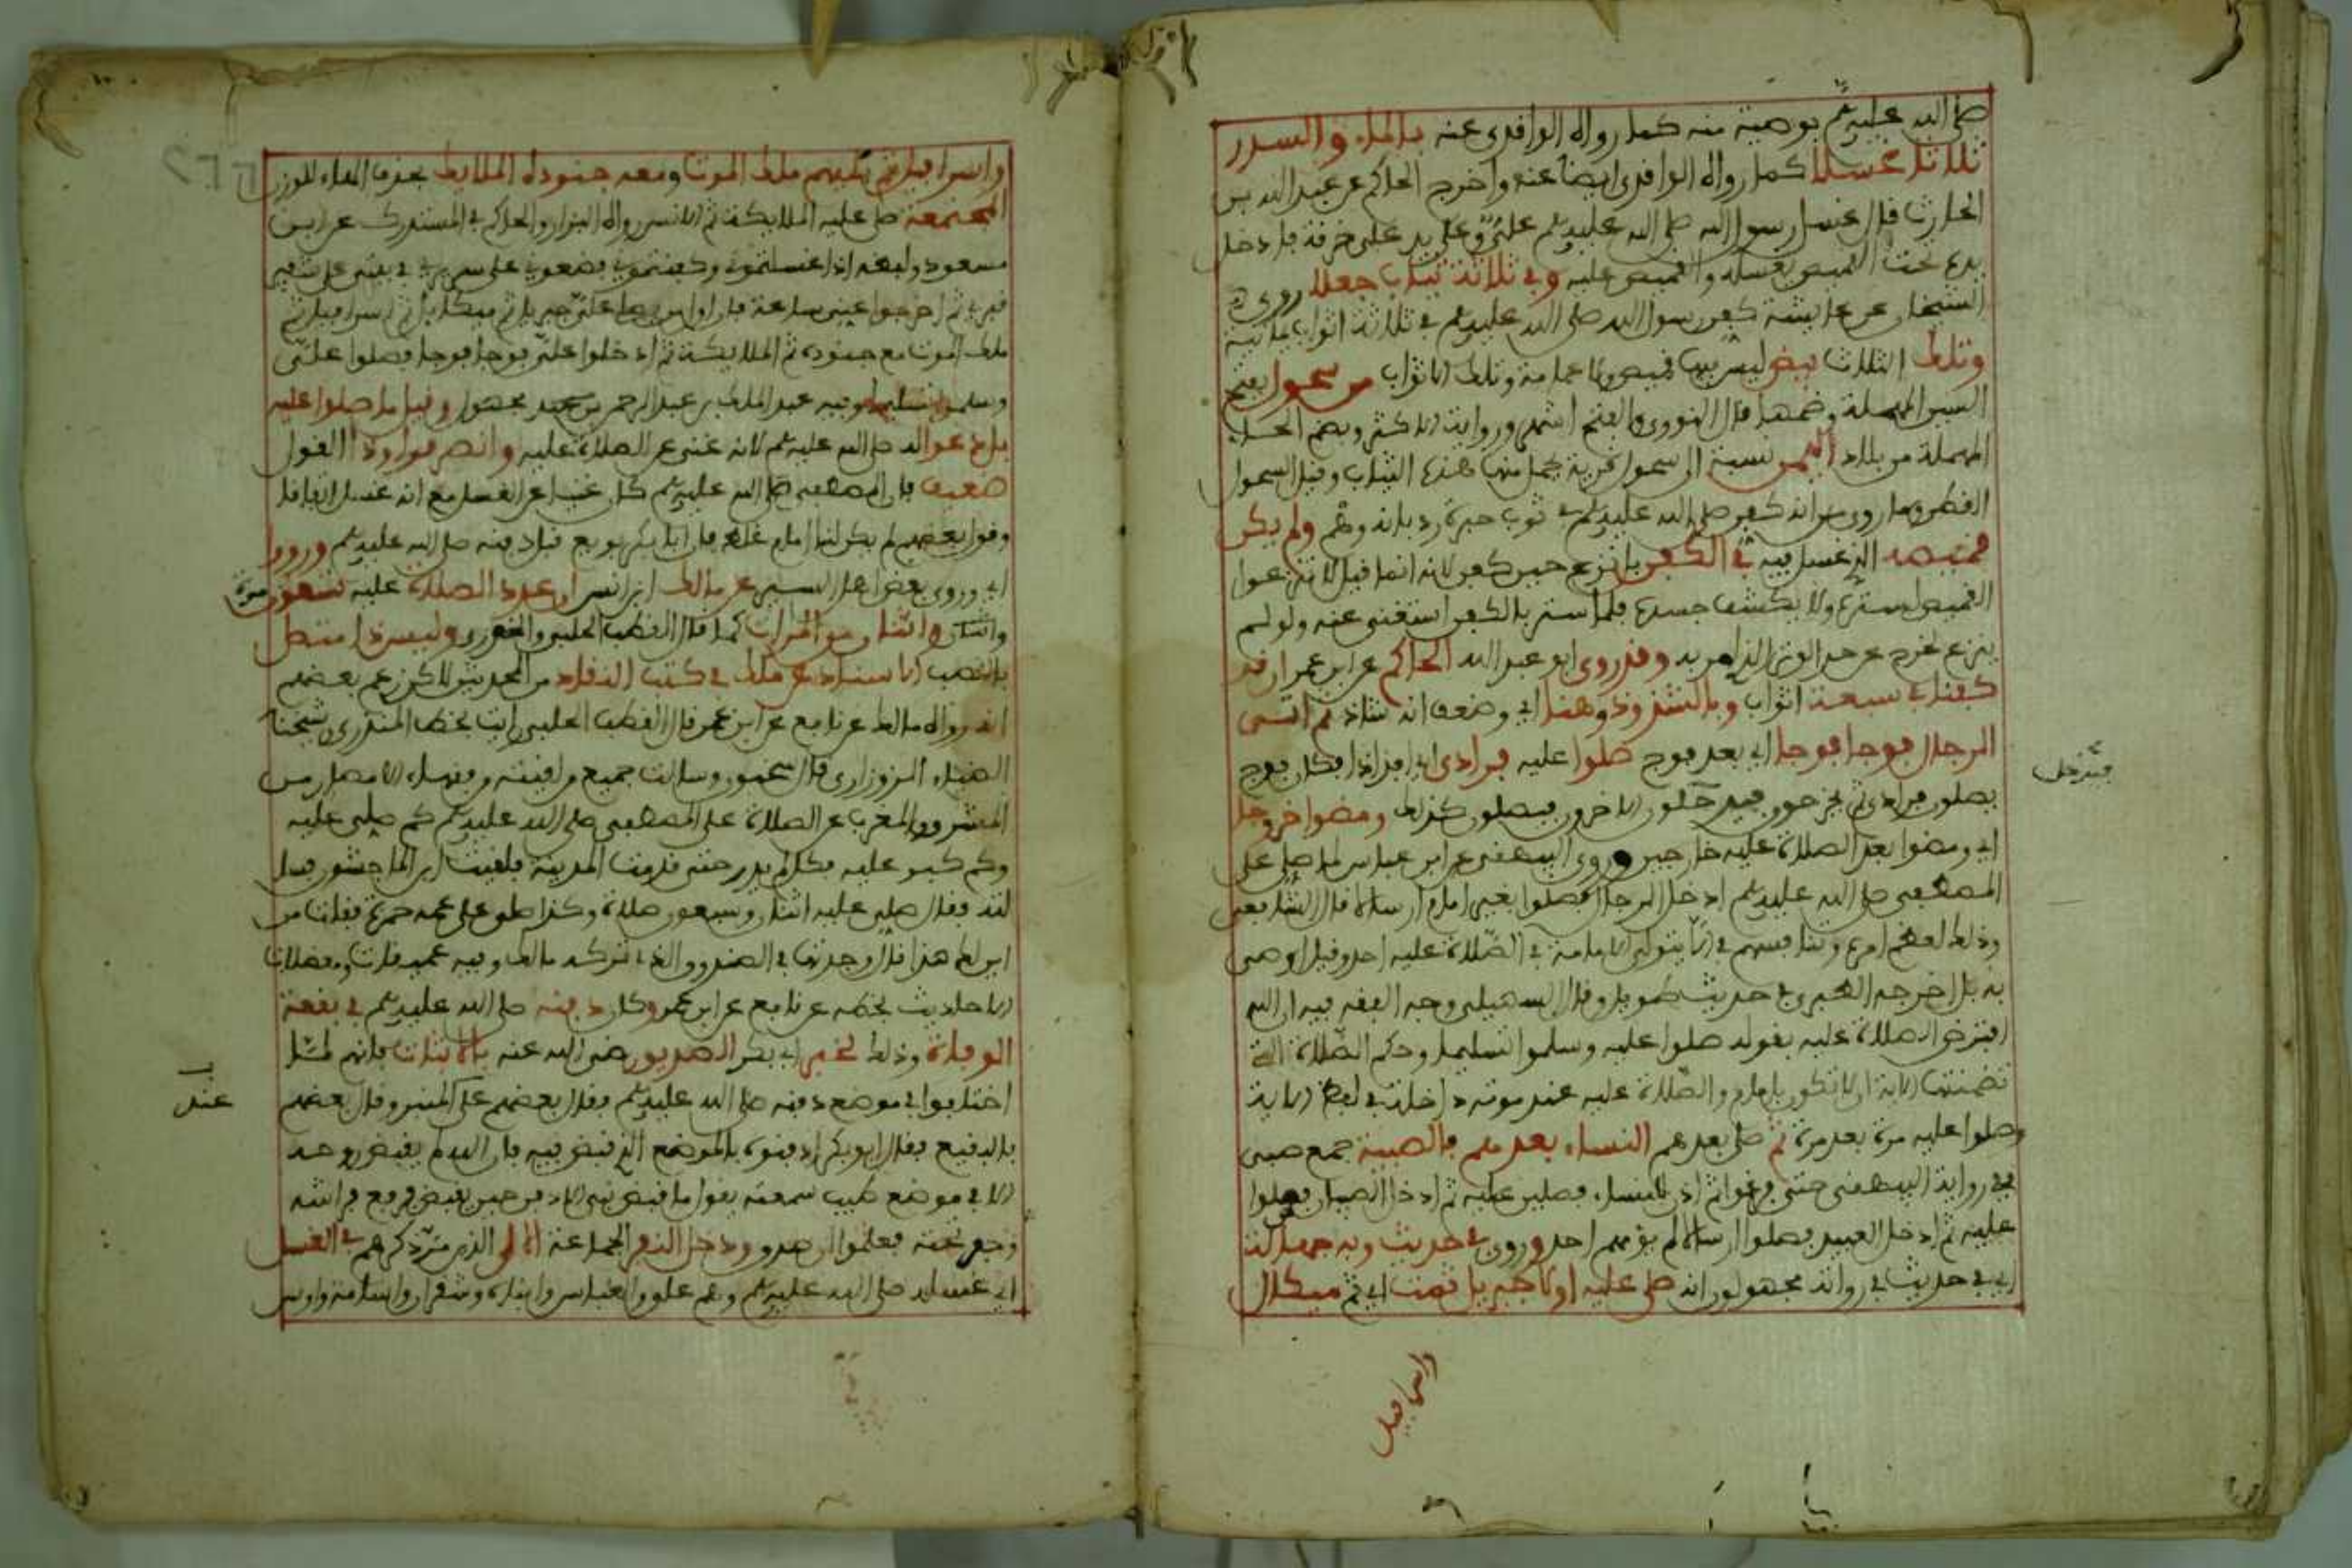 صلى الله عليه وسلم بوصية منه كما رواه الواقدي عنه بالماء والسدر
ثلاثا غسلا كما رواه الواقدي ايضا عنه واخرج الحاكم عن عبد الله بن
الحارث قال غسل رسول الله صلى الله عليه وسلم علي وعلى يد علي خرقة فادخل
يده تحت القميص يغسله والقميص عليه وفي ثلاثة ثياب جعلا روى
الشيخان عن عايشة كفن رسول الله صلى الله عليه وسلم في ثلاثة اثواب يمانية
وتلك الثلاث بيض ليس فيها قميص ولا عمامة وتلك الاثواب من سحول بفتح
السين المهملة وضمها قال النووي والفتح اشهر ورواية الاكثر وبضم الحاء
المهملة من بلاد اليمن نسبة الى سحول قرية يحمل منها هذه الثياب وقيل السحول
القطن وما روي من انه كفن صلى الله عليه وسلم في ثوب حبرة رد بانه وهم ولم يكن
قميصه الذي غسل فيه في الكفن بل نزع حين كفن لانه انما قيل لا تنزعوا
القميص لستره ولا يكشف جسده فلما ستر بالكفن استغنى عنه ولو لم
ينزع لخرج عن حد الوتر الذي امر به وقد روى ابو عبد الله الحاكم عن ابن عمر ان قد
كفن في سبعة اثواب وبالشذوذ وهنا اي وضعف انه شاذ ثم اتى
الرجال فوجا فوجا اي بعد فوج صلوا عليه فرادى اي افذاذا فكان فوج
فيدخل
يصلون فرادى ثم يخرجون فيدخلون الاخرون فيصلون كذلك ومضوا خروجا
اي ومضوا بعد الصلاة عليه خارجين وروى البيهقي عن ابن عباس لما صلي على
المصطفى صلى الله عليه وسلم ادخل الرجال فصلوا بغير امام ارسالا قال الشافعي
وذلك لعظم امره وتنافسهم في الا يتولى الامامة في الصلاة عليه احد وقيل اوصى
به بل اخرجه الطبري في حديث طويل وقال السهيلي وجه الفقه فيه ان الله
افترض الصلاة عليه بقوله صلوا عليه وسلموا تسليما وحكم الصلاة التي
تضمنتها الاية ان لا تكون بامام والصلاة عليه عند موته داخلة في لفظ الاية
وصلوا عليه مرة بعد مرة ثم صلى بعدهم النساء بعدهم فالصبية جمع صبي
في رواية البيهقي حتى فرغوا ثم اذن للنساء فصلين عليه ثم ادخل الصبيان فصلوا
عليه ثم ادخل العبيد فصلوا ارسالا لم يؤمهم احد وروي في حديث وبه جهالة
اي في حديث في رواته مجهولون انه صلى عليه اولا جبريل ثمت اي ثم ميكال
اسرافيل
واسرافيل ثم يليهم ملك الموت ومعه جنوده الملايك بحذف الهاء للوزن
المجتمعة صلى عليه الملايكة ثم الانس رواه البزار والحاكم في المستدرك عن ابن
مسعود ولفظه اذا غسلتموني وكفنتموني فضعوني على سريري في بيتي على شفير
قبري ثم اخرجوا عني ساعة فان اول من يصلي علي جبريل ثم ميكايل ثم اسرافيل ثم
ملك الموت مع جنوده ثم الملايكة ثم ادخلوا علي فوجا فوجا فصلوا علي
وسلموا تسليما وفيه عبد الملك بن عبد الرحمن مجهول وقيل ما صلوا عليه
بل دعوا له صلى الله عليه وسلم لانه غني عن الصلاة عليه وانصرفوا وذا القول
ضعيف فان المصطفى صلى الله عليه وسلم كان غنيا عن الغسل مع انه غسل اتفاقا
وقول بعضهم لم يكن لها امام غلط فان ابا بكر بويع قبل دفنه صلى الله عليه وسلم ورووا
اي وروى بعض اهل السير عن مالك ابن انس ان عدد الصلاة عليه تسعون مرة
واثنان واثنان من المرات كما قال القطب الحلبي والمغوري وليس ذا متصل
بالنصب الاسناد عن مالك في كتب النقاد من المحدثين لكن زعم بعضهم
انه رواه مالك عن نافع عن ابن عمر قال القطب الحلبي رايت بخط المنذري شيخنا
قال سحنون وسالت جميع من لقيته من فقهاء الامصار من
المشرق والمغرب عن الصلاة على المصطفى صلى الله عليه وسلم كم صلى عليه
وكم كبر عليه فكل لم يدر حتى قدمت المدينة فلقيت ابن الماجشون فسا
لته فقال صلي عليه اثنان وسبعون صلاة وكذا صلوا على عمه حمزة فقلت من
اين لك هذا قال وجدتها في الصندوق الذي تركه مالك وفيه عميقات ومعضلات
الاحاديث بخطه عن نافع عن ابن عمر وكان دفنه صلى الله عليه وسلم في بقعة
الوفاة وذلك لخبر ابي بكر الصديق رضي الله عنه بالاثبات فانهم لما
عند
اختلفوا في موضع دفنه صلى الله عليه وسلم فقال بعضهم على المنبر وقال بعضهم
بالبقيع فقال ابو بكر ادفنوه بالموضع الذي قبض فيه فان الله لم يقبض روحه
الا في موضع طيب سمعته يقول ما قبض نبي الا دفن حين يقبض فرفع فراشه
وحفر تحته فعلموا ان صدق ودخل النفر الجماعة الالى الذين مر ذكرهم في الغسل
اي غسله صلى الله عليه وسلم وهم علي والعباس وابناه وشقران واسامة واوس